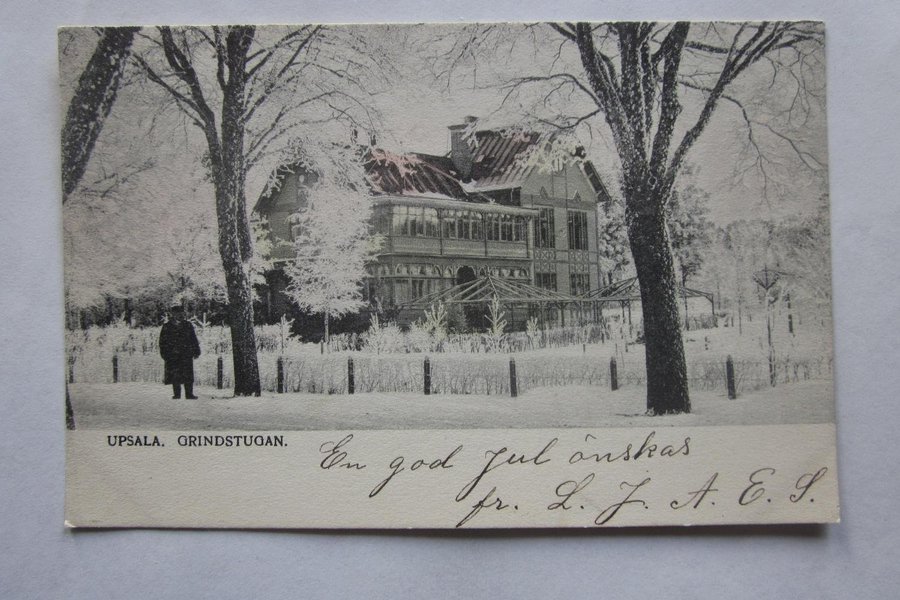 UPSALA. GRINDSTUGAN.
En god Jul önskas
fr. L. J. A. E. S.